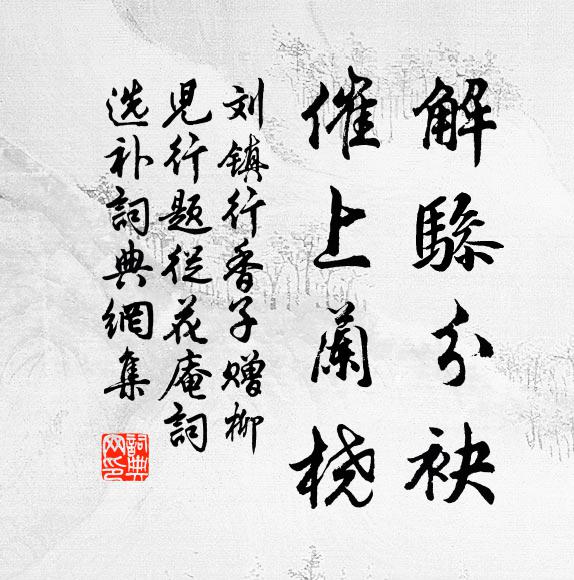 解驂分袂
催上蘭桡
刘镇行香子赠柳
児行题從花庵詞
选补詞典網集
詞典網印